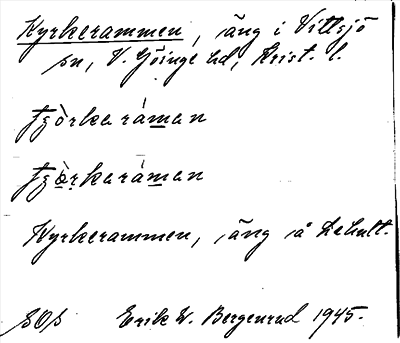 Kyrkerammen, äng i Vittsjö
sn, V. Göinge hd, Krist. l.
tʒòrkerámen
tʒòrkarámen
Kyrkerammen, äng å Lehult.
SOS Erik W. Bergenrud 1945.